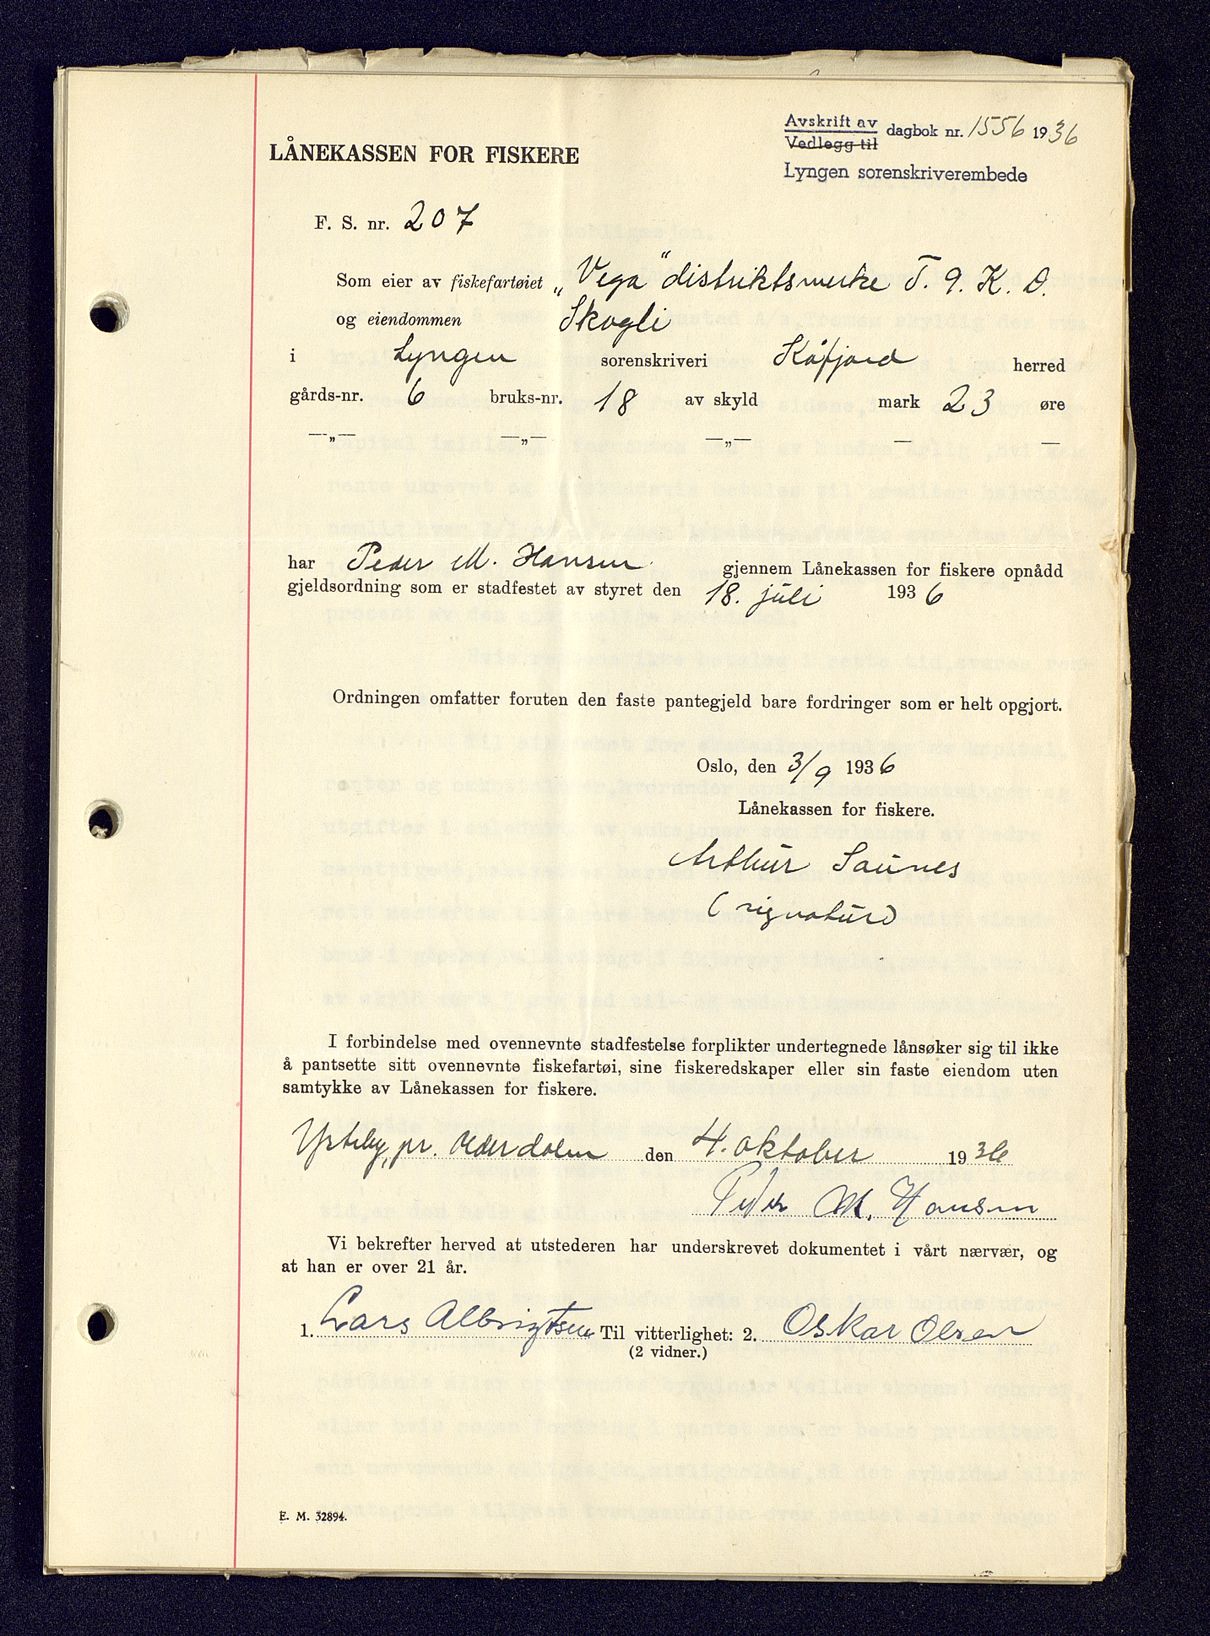 Avskrift av
Vedlegg til
dagbok nr. 1556 1936
Lyngen sorenskriverembede
LÅNEKASSEN FOR FISKERE
F. S. nr. 207
Som eier av fiskefartøiet „Vega" distriktsmerke T. 9. K. D.
og eiendommen Skogli
i Lyngen sorenskriveri Kåfjord herred
gårds-nr. 6 bruks-nr. 18 av skyld mark 23 øre
—„— —„— —„— — —
har Peder M. Hansen gjennem Lånekassen for fiskere opnådd
gjeldsordning som er stadfestet av styret den 18. juli 1936
Ordningen omfatter foruten den faste pantegjeld bare fordringer som er helt opgjort.
Oslo, den 3/9 1936
Lånekassen for fiskere.
Arthur Saunes
(signatur)
I forbindelse med ovennevnte stadfestelse forplikter undertegnede lånsøker sig til ikke
å pantsette sitt ovennevnte fiskefartøi, sine fiskeredskaper eller sin faste eiendom uten
samtykke av Lånekassen for fiskere.
pr. Olderdalen den 4. oktober 1936
Peder M. Hansen
Vi bekrefter herved at utstederen har underskrevet dokumentet i vårt nærvær, og
at han er over 21 år.
1. Lars Albrigtsen Til vitterlighet: 2. Oskar Olsen
(2 vidner.)
E. M. 32894.